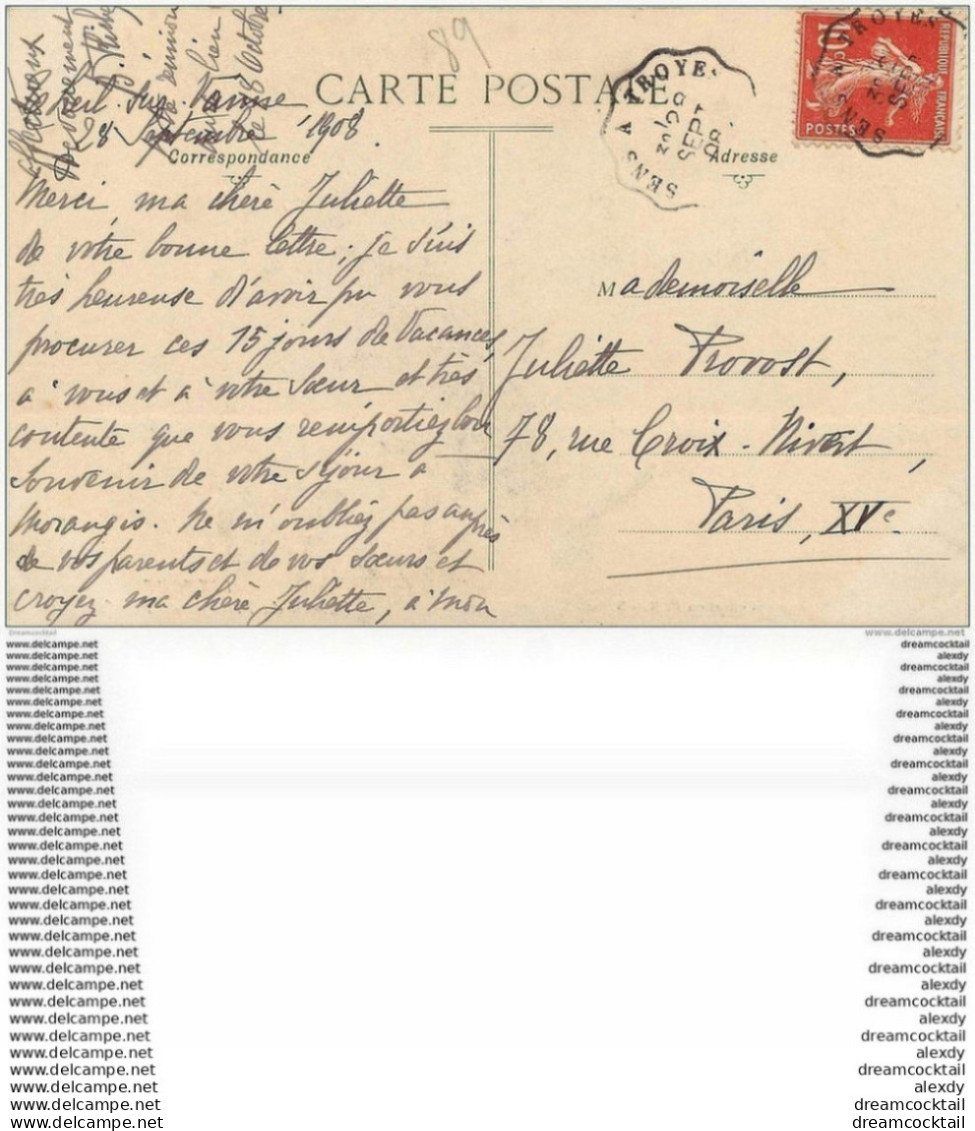 89
CARTE POSTALE
Correspondance
Adresse
28 Septembre 1908
Merci, ma chère Juliette
de votre bonne lettre; je suis
très heureuse d'avoir pu vous
procurer ces 15 jours de Vacances,
à vous et à votre Sœur et très
contente que vous remportiez bon
souvenir de votre séjour à
Morangis. Ne m'oubliez pas auprès
de vos parents et de vos sœurs et
croyez, ma chère Juliette, à mon
affectueux
dévouement
8 Octobre
Mademoiselle
Juliette Provost,
78, rue Croix-Nivert,
Paris, XVe
TROYES
SENS A
SEPT
08
TROYES
SENS A
REPUBLIQUE FRANÇAISE
10c
POSTES
Dreamcocktail
www.delcampe.net
www.delcampe.net dreamcocktail
www.delcampe.net alexdy
www.delcampe.net dreamcocktail
www.delcampe.net alexdy
www.delcampe.net dreamcocktail
www.delcampe.net alexdy
www.delcampe.net dreamcocktail
www.delcampe.net alexdy
www.delcampe.net dreamcocktail
www.delcampe.net alexdy
www.delcampe.net dreamcocktail
www.delcampe.net alexdy
www.delcampe.net dreamcocktail
www.delcampe.net alexdy
www.delcampe.net dreamcocktail
www.delcampe.net alexdy
www.delcampe.net dreamcocktail
www.delcampe.net alexdy
www.delcampe.net dreamcocktail
www.delcampe.net alexdy
www.delcampe.net dreamcocktail
www.delcampe.net alexdy
www.delcampe.net dreamcocktail
www.delcampe.net alexdy
www.delcampe.net dreamcocktail
www.delcampe.net alexdy
www.delcampe.net dreamcocktail
www.delcampe.net alexdy
www.delcampe.net dreamcocktail
www.delcampe.net alexdy
www.delcampe.net dreamcocktail
www.delcampe.net alexdy
www.delcampe.net dreamcocktail
www.delcampe.net alexdy
www.delcampe.net dreamcocktail
www.delcampe.net alexdy